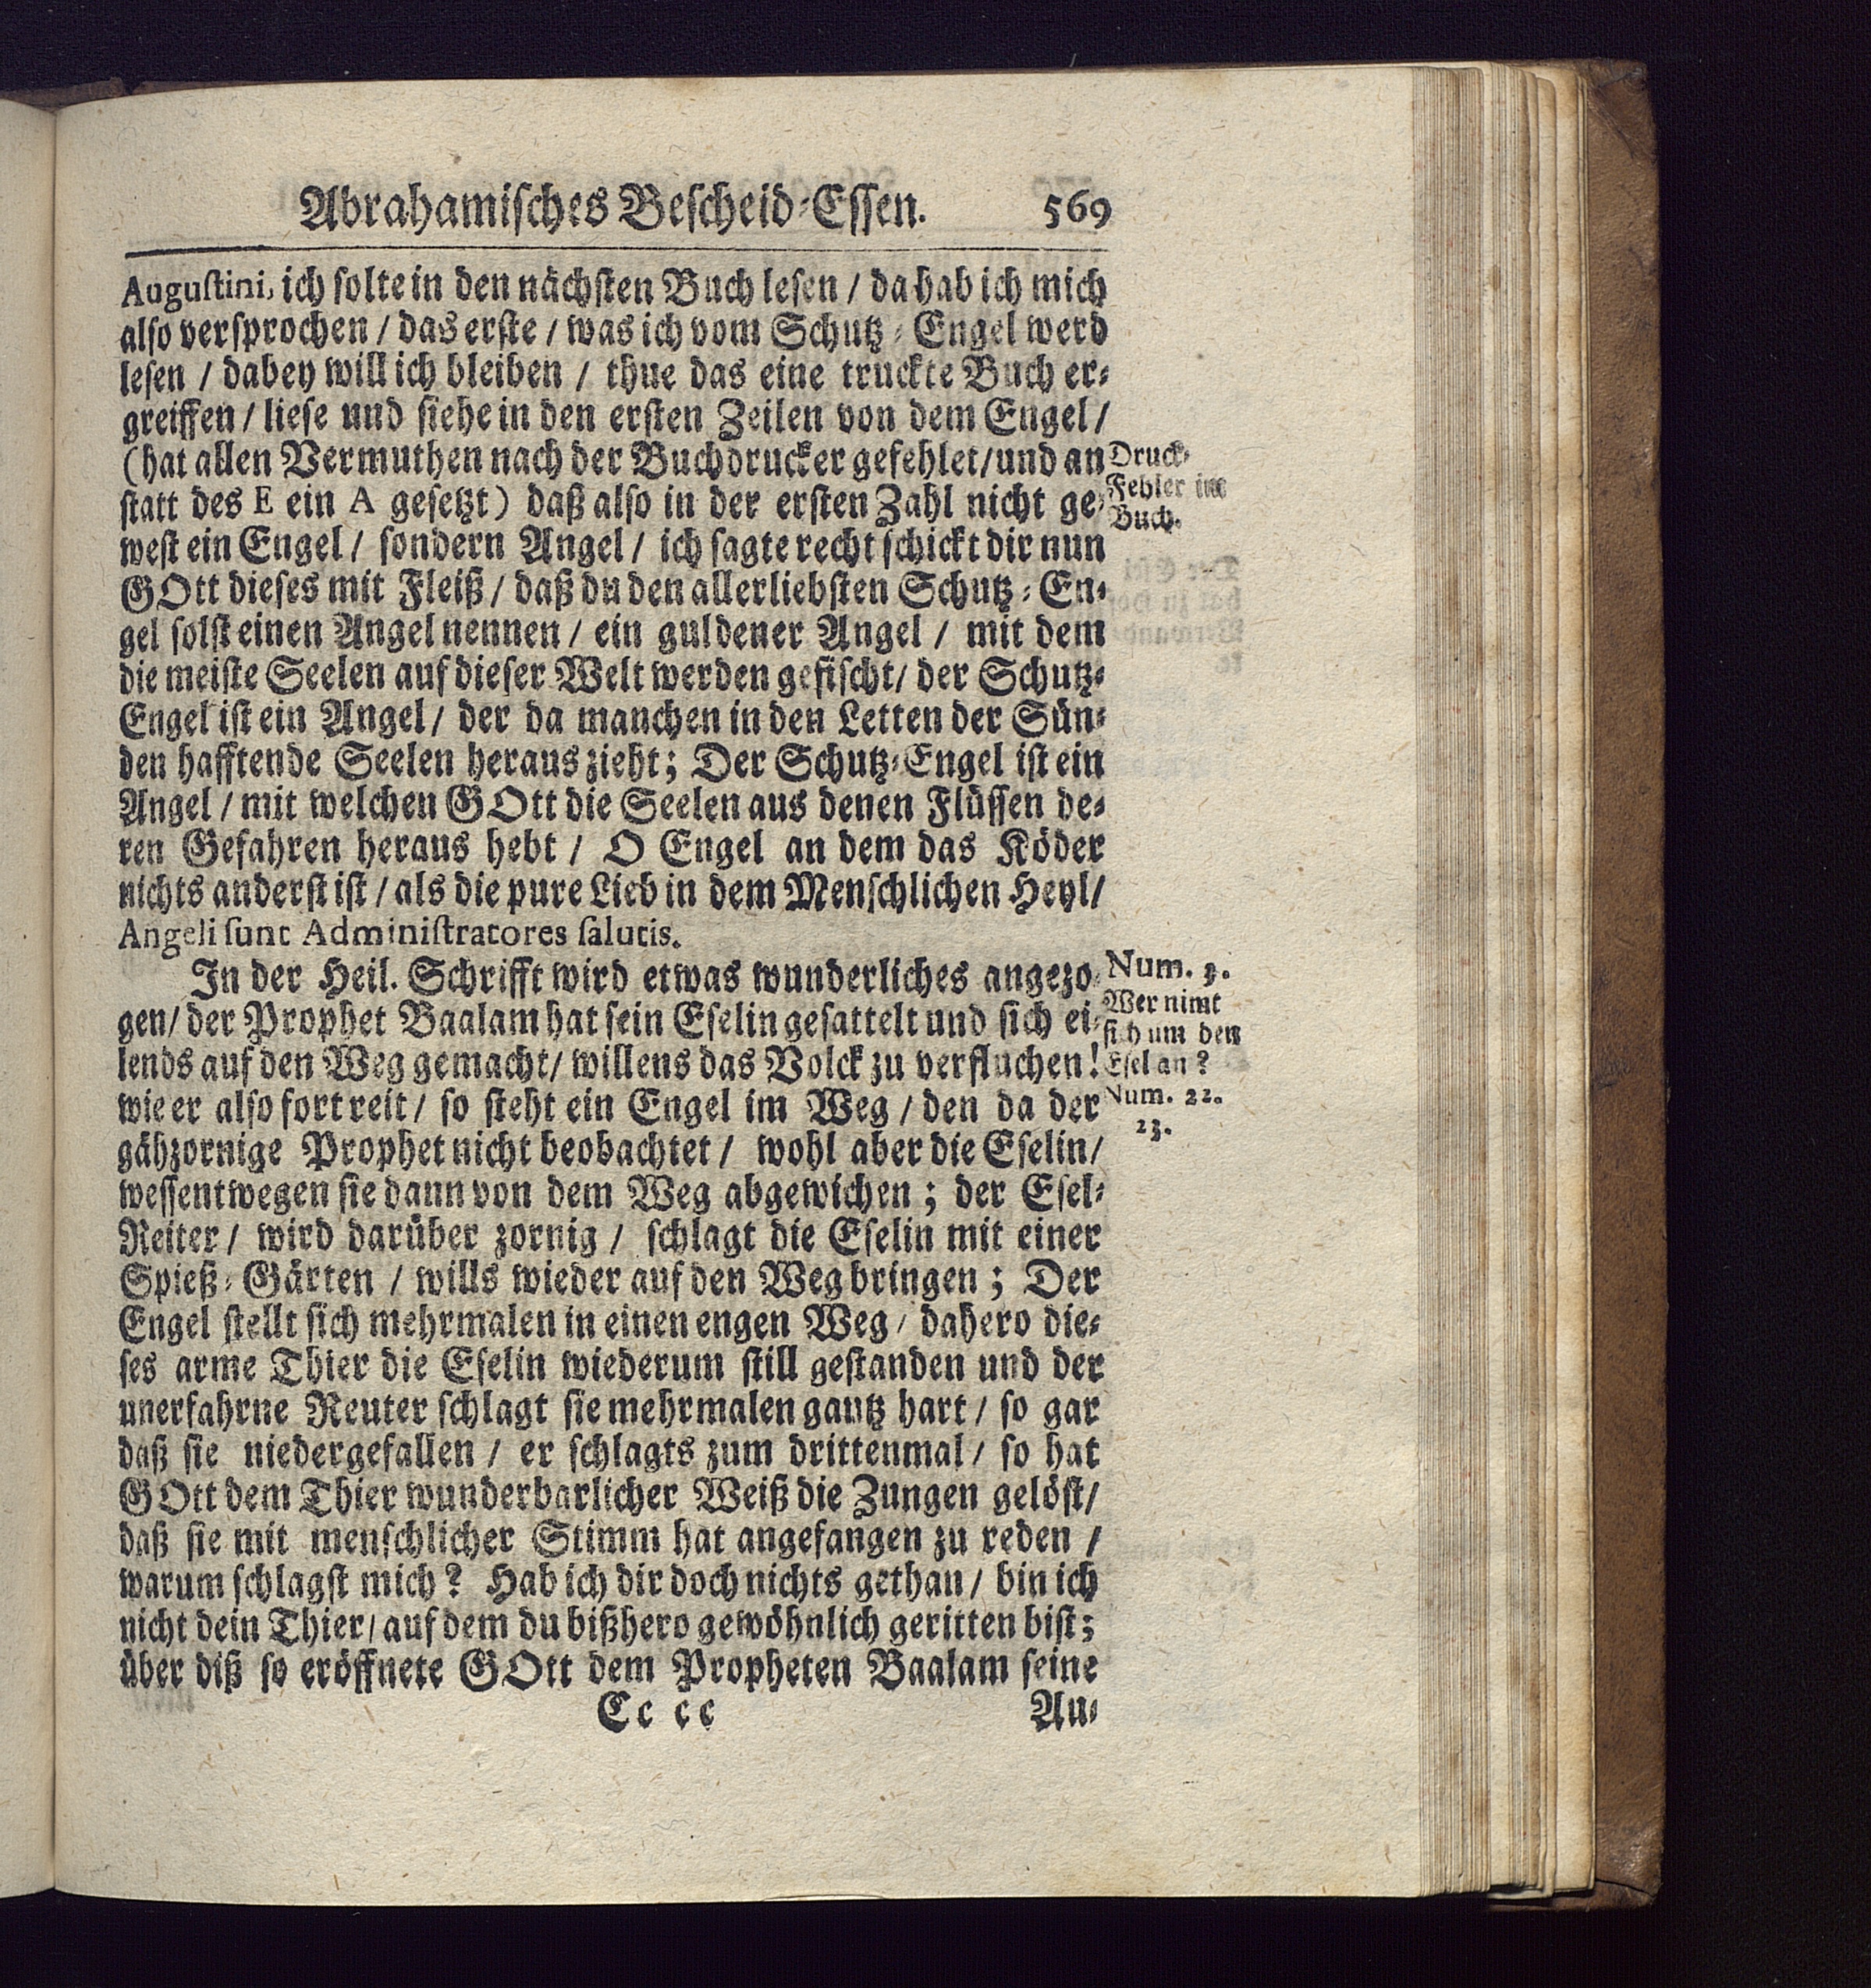 Abrahamisches Bescheid-Essen. 569
Augustini, ich solte in den nächsten Buch lesen / da hab ich mich
also versprochen / das erste / was ich vom Schutz-Engel werd
lesen / dabey will ich bleiben / thue das eine truckte Buch er-
greiffen / liese und siehe in den ersten Zeilen von dem Engel /
(hat allen Vermuthen nach der Buchdrucker gefehlet/und an
Druck-
statt des E ein A gesetzt) daß also in der ersten Zahl nicht ge-
Fehler im
Buch.
west ein Engel / sondern Angel / ich sagte recht schickt dir nun
GOtt dieses mit Fleiß / daß du den allerliebsten Schutz-En-
gel solst einen Angel nennen / ein guldener Angel / mit dem
die meiste Seelen auf dieser Welt werden gefischt/ der Schutz-
Engel ist ein Angel / der da manchen in den Letten der Sün-
den hafftende Seelen heraus zieht; Der Schutz-Engel ist ein
Angel / mit welchen GOtt die Seelen aus denen Flüssen de-
ren Gefahren heraus hebt / O Engel an dem das Köder
nichts anderst ist / als die pure Lieb in dem Menschlichen Heyl/
Angeli sunt Administratores salutis.
In der Heil. Schrifft wird etwas wunderliches angezo-
Num. 3.
gen/ der Prophet Baalam hat sein Eselin gesattelt und sich ei-
Wer nimt
sich um den
lends auf den Weg gemacht/ willens das Volck zu verfluchen!
Esel an?
wie er also fort reit / so steht ein Engel im Weg / den da der
Num. 22.
23.
gähzornige Prophet nicht beobachtet / wohl aber die Eselin/
wessentwegen sie dann von dem Weg abgewichen; der Esel-
Reiter / wird darüber zornig / schlagt die Eselin mit einer
Spieß-Gärten / wills wieder auf den Weg bringen; Der
Engel stellt sich mehrmalen in einen engen Weg / dahero die-
ses arme Thier die Eselin wiederum still gestanden und der
unerfahrne Reuter schlagt sie mehrmalen gantz hart / so gar
daß sie niedergefallen / er schlagts zum drittenmal / so hat
GOtt dem Thier wunderbarlicher Weiß die Zungen gelöst/
daß sie mit menschlicher Stimm hat angefangen zu reden /
warum schlagst mich? Hab ich dir doch nichts gethan / bin ich
nicht dein Thier/ auf dem du bißhero gewöhnlich geritten bist;
über diß so eröffnete GOtt dem Propheten Baalam seine
Cc cc Au-